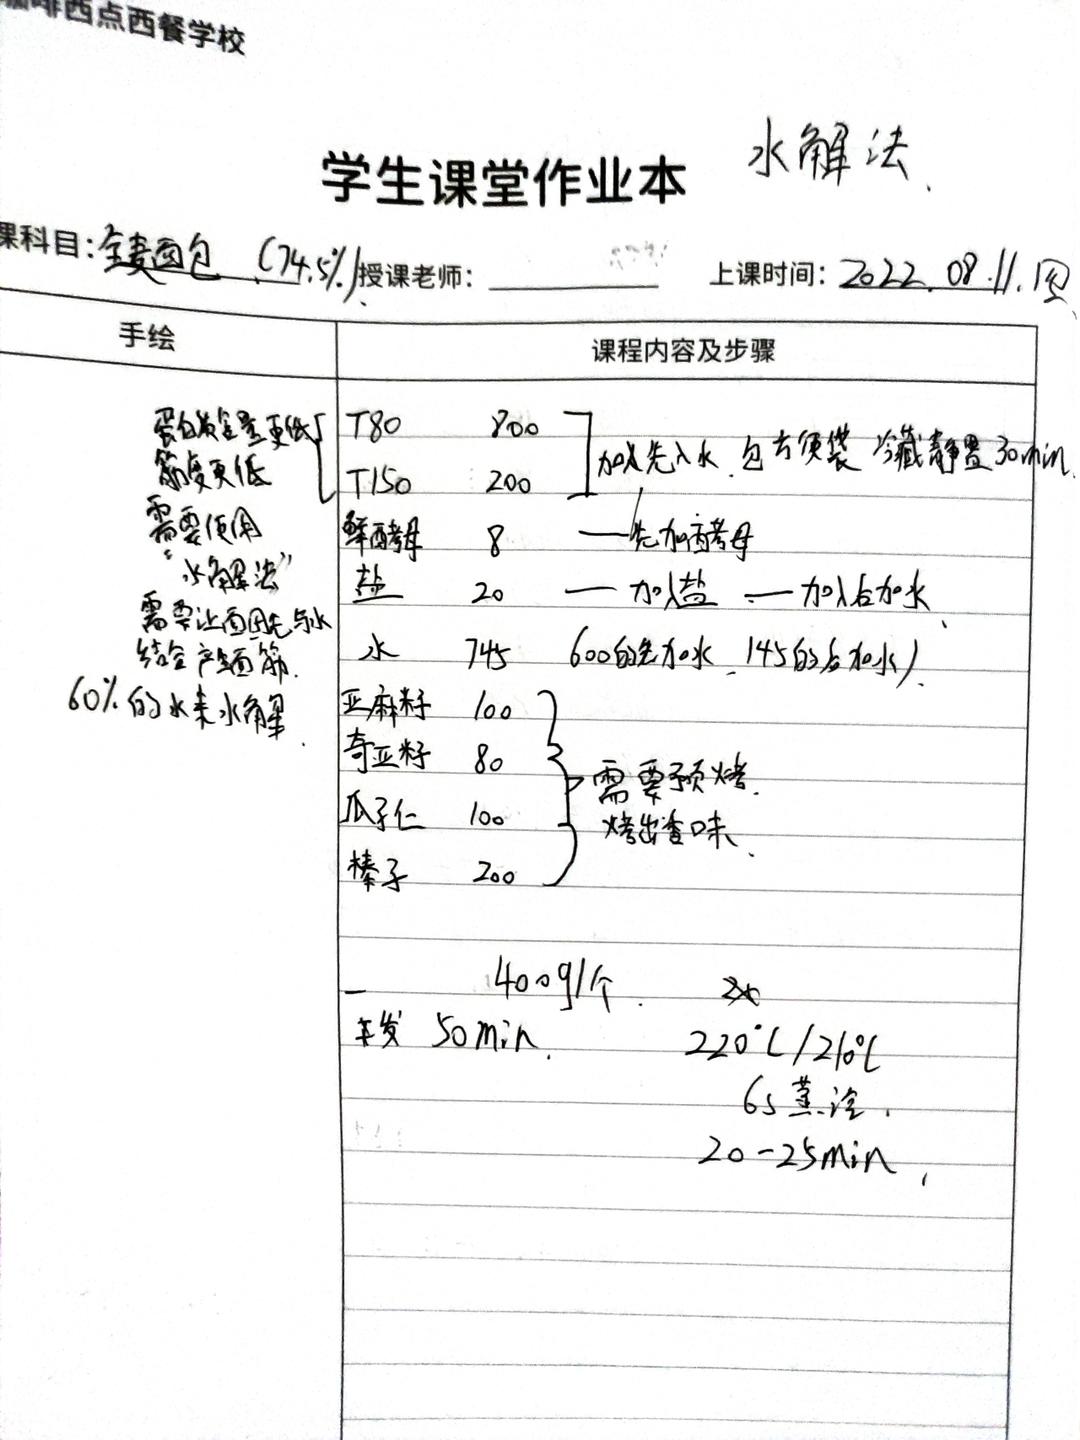 咖啡西点西餐学校
水解法.
学生课堂作业本
课科目:全麦面包 (74.5%) 授课老师: 上课时间: 2022.08.11.
手绘 课程内容及步骤
蛋白质含量更低
筋度更低
需要使用
"水解法"
需要让面团先与水
结合产生面筋.
60%的水来水解.
T80 800
T150 200
加入先入水.包方便袋 冷藏静置30min.
鲜酵母 8 —先加酵母
盐 20 — 加入盐 — 加入后加水.
水 745 600的先加水.145的后加水)
亚麻籽 100
奇亚籽 80
瓜子仁 100
榛子 200
需要预烤.
烤出香味.
一 400g/个.
220℃/210℃
发 50min.
6s蒸汽.
20-25min.